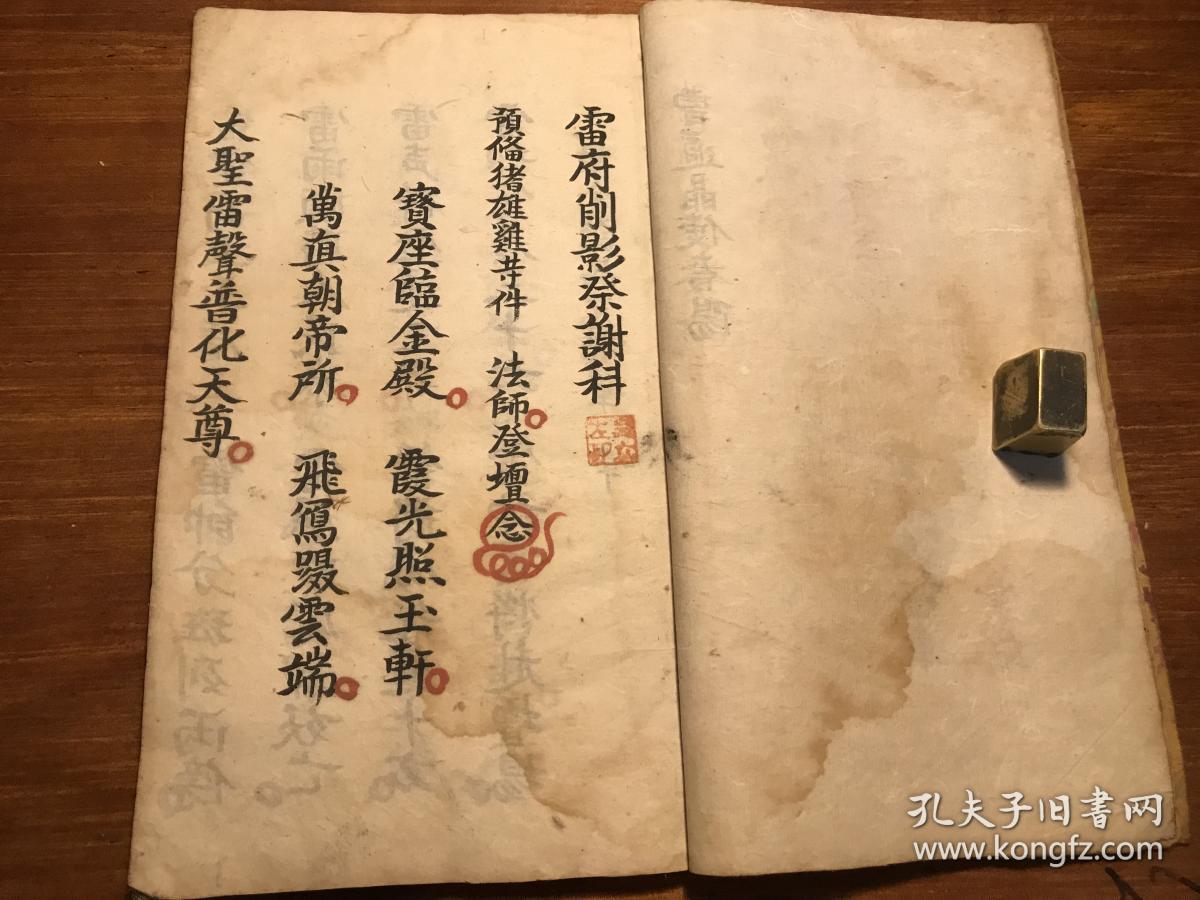 雷府削影祭謝科
預俻猪雄雞等件 法師登壇念
寶座臨金殿 霞光照玉軒
萬真朝帝所 飛舃躡雲端
大聖雷聲普化天尊
孔夫子旧书网
www.kongfz.com